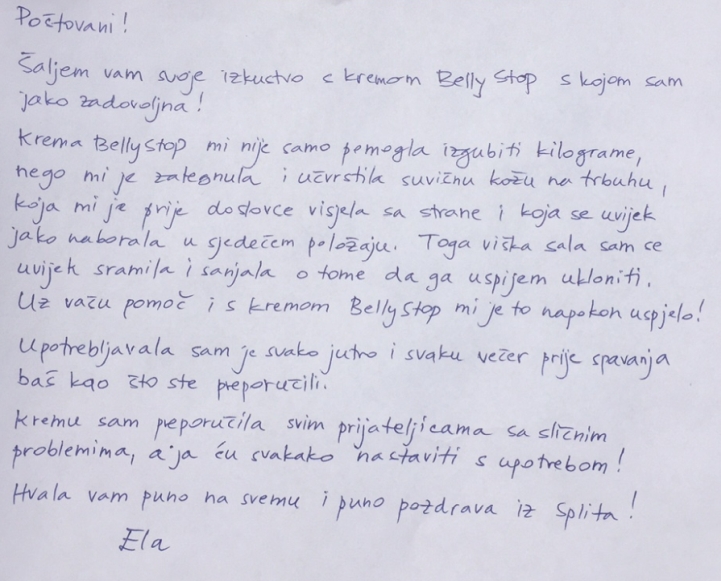 Počtovani!
Šaljem vam svoje izkuctvo c kremom Belly Stop s kojom sam
jako zadovoljna!
Krema BellyStop mi nije samo pomogla izgubiti kilograme,
nego mi je zategnula i učvrstila suvižnu kožu na trbuhu,
koja mi je prije doslovce visjela sa strane i koja se uvijek
jako naborala u sjedećem položaju. Toga viška sala sam ce
uvijek sramila i sanjala o tome da ga uspijem ukloniti.
Uz važu pomoč i s kremom BellyStop mi je to napokon uspjelo!
Upotrebljavala sam je svako jutro i svaku večer prije spavanja
baš kao što ste preporučili.
Kremu sam preporučila svim prijateljicama sa sličnim
problemima, a ja ću svakako nastaviti s upotrebom!
Hvala vam puno na svemu i puno pozdrava iz Splita!
Ela